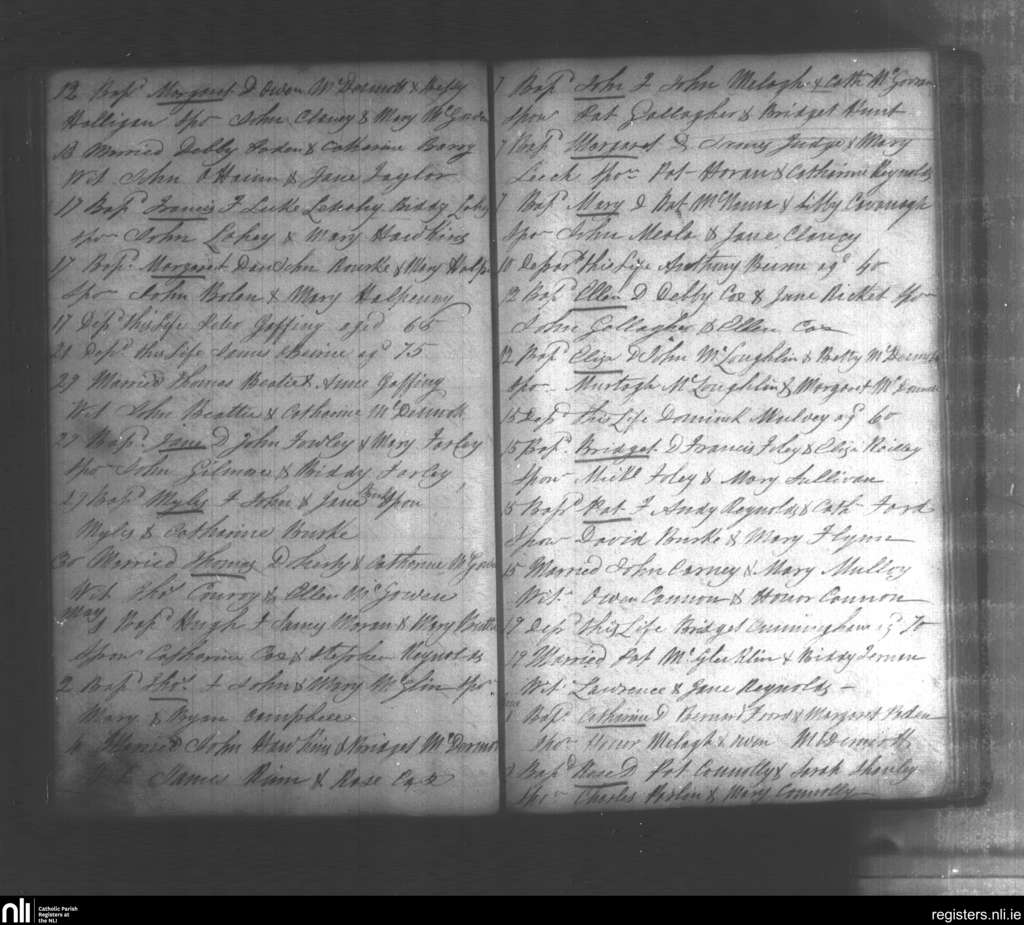 12 Bap.d Margaret D Owen McDermott & Betty
Halligan Spo John Clancy & Mary McGowan
13 Married Debby & Catharine
Wit John O & Jane Taylor
17 Bap.d Francis F Luke Biddy
Spo John & Mary Hawkins
17 Bap.d Margaret Dau John Rourke & Mary
Spo John Bolan & Mary Halpenny
17 Dep.d this Life Peter Gaffiny aged 66
21 Dep.d this Life James Beirne ag.d 75
29 Married Thomas Beatie & Anne Gaffiny
Wit John Beattie & Catharine McDermott
27 Bap.d Jane D John Fowley & Mary Farley
Spo John Gilmore & Biddy Farley
29 Bap.d Myles F John & Jane Spon
Myles & Catharine Burke
30 Married Thomas Doherty & Catharine McGowan
Wit Tho.s Conroy & Ellen McGowan
May
1 Bap.d Hugh F James Moran & Mary
Spon Catharine Cox & Stephen Reynolds
2 Bap.d Tho.s F John & Mary McGlin Spo
Mary & Bryan Campbell
Married John Hawkins & Bridget McDermott
James & Rose Cox
7 Bap.d John F John Melagh & Cath McGowan
Spon Pat Gallagher & Bridget Hunt
7 Bap.d Margaret D Judge & Mary
Leech Spo Pat Horan & Catharine Reynolds
7 Bap.d Mary D Pat & Libby Cavanagh
Spo John & Jane Clancy
10 Depar.d this Life Anthony Beirne ag.d 40
12 Bap.d Ellen D Debby Cox & Jane Spo
John Gallagher & Ellen Cox
12 Bap.d Eliza D John McLoughlin & Betty McDermott
Spo Murtagh McLoughlin & Margaret
15 Dep.d this Life Dominick Mulvey ag.d 60
15 Bap.d Bridget D Francis Foley & Eliza
Spon Mich.l Foley & Mary Sullivan
15 Bap.d Pat F Andy Reynolds & Cath Ford
Spon David Burke & Mary Flynn
15 Married John Carney & Mary Mulloy
Wit Owen Cannon & Honor Cannon
17 Dep.d this Life Bridget Cunningham ag 70
19 Married Pat & Biddy
Wit Lawrence & Jane Reynolds
1 Bap.d Catharine D Bernard Ford & Margaret
Spo Honor Melagh & Owen McDermott
Bap.d Rose D Pat Connolly & Sarah Shanley
Spo Charles & Mary Connolly
nli
Catholic Parish
Registers at
the NLI
registers.nli.ie